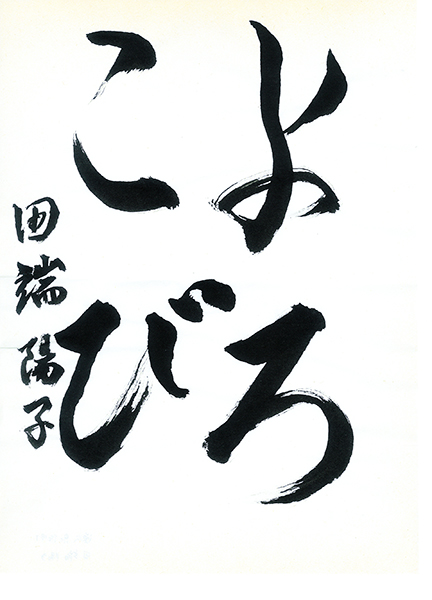 よろ
こび
田端陽子